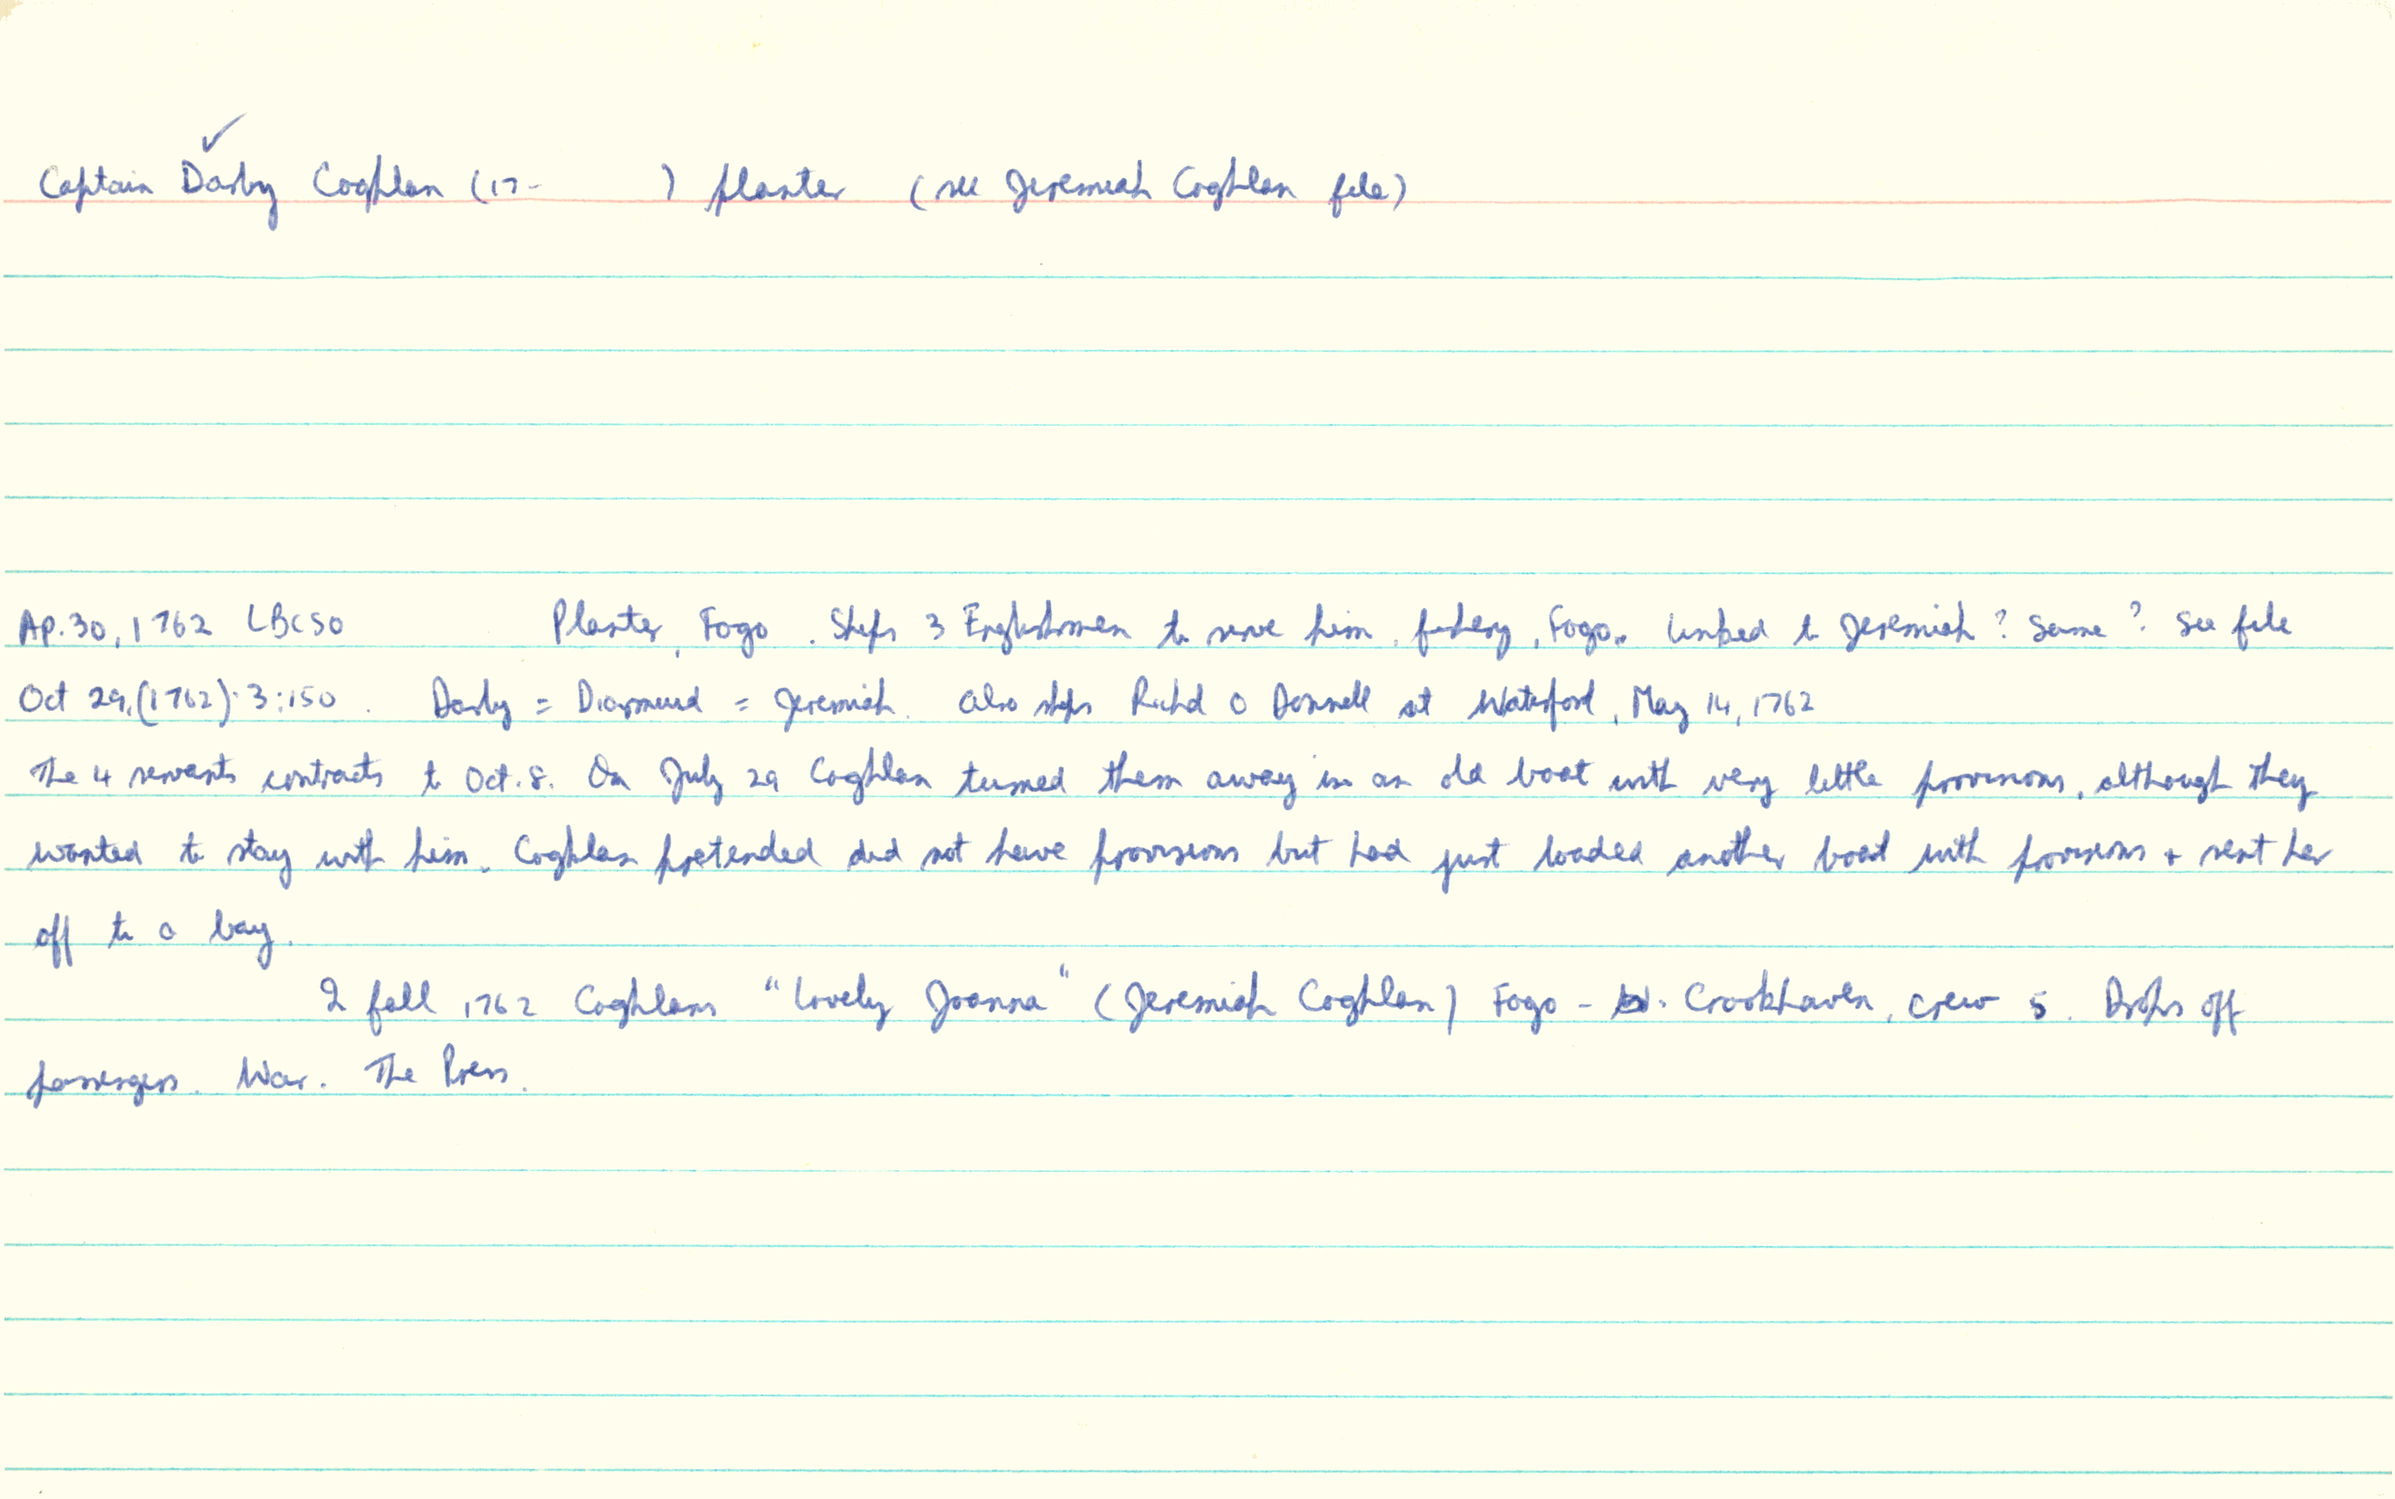 ✓
Captain Darby Coghlan (17-          ) planter (see Jeremiah Coghlan file)
Ap. 30, 1762 LBCSO Planter, Fogo. Ships 3 Englishmen to serve him, fishery, Fogo. Linked to Jeremiah? Same? See file
Oct 29, (1762): 3:150. Darby = Diarmuid = Jeremiah. Also ships Richd O Donnell at Waterford, May 14, 1762
The 4 servants contracts to Oct. 8. On July 29 Coghlan turned them away in an old boat with very little provisions, although they
wanted to stay with him. Coghlan pretended did not have provisions but had just loaded another boat with provisions + sent her
off to a bay.
2 fall 1762 Coghlans "Lovely Joanna" (Jeremiah Coghlan) Fogo - Crookhaven, crew 5. Drops off
passengers. War. The Press.